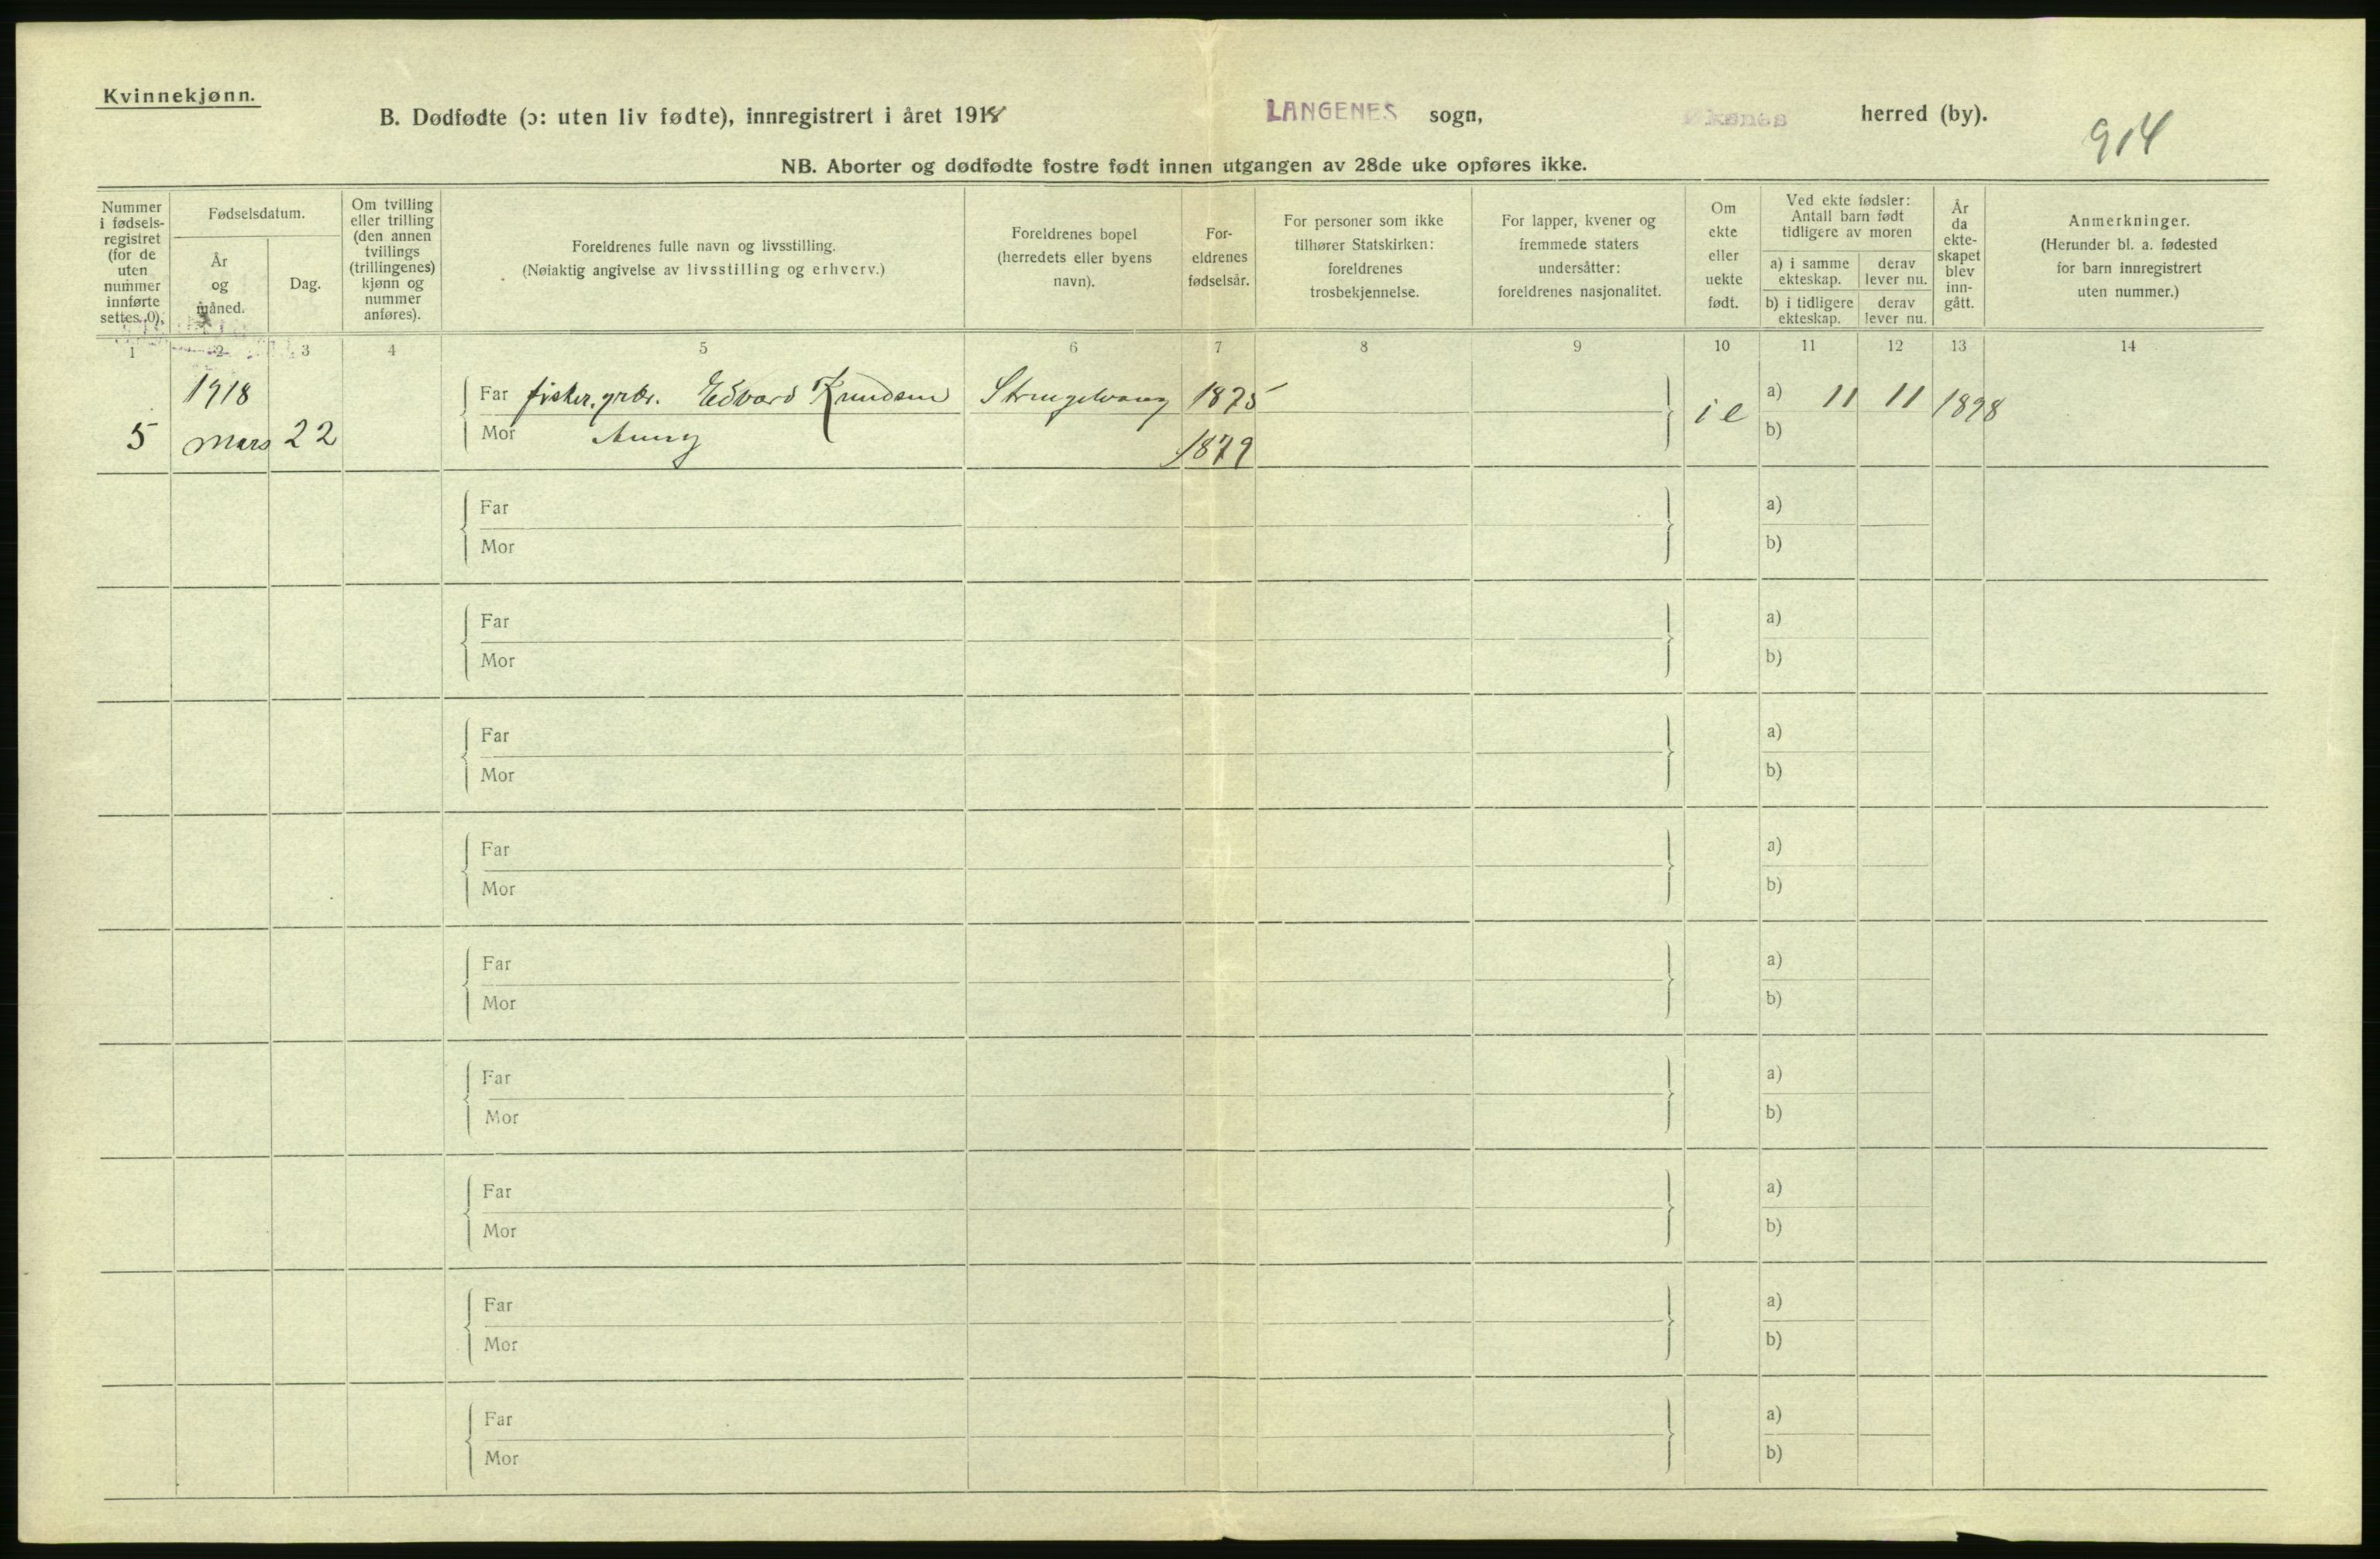 Kvinnekjønn.
B. Dødfødte (ɔ: uten liv fødte), innregistrert i året 1918 LANGENES sogn, Øksnes herred (by).
914
NB. Aborter og dødfødte fostre født innen utgangen av 28de uke opføres ikke.
Nummer i fødsels-registret (for de uten nummer innførte settes 0).
Fødselsdatum.
År og måned.
Dag.
Om tvilling eller trilling (den annen tvillings (trillingenes) kjønn og nummer anføres).
Foreldrenes fulle navn og livsstilling.
(Nøiaktig angivelse av livsstilling og erhverv.)
Foreldrenes bopel (herredets eller byens navn).
For-eldrenes fødselsår.
For personer som ikke tilhører Statskirken: foreldrenes trosbekjennelse.
For lapper, kvener og fremmede staters undersåtter: foreldrenes nasjonalitet.
Om ekte eller uekte født.
Ved ekte fødsler: Antall barn født tidligere av moren
a) i samme ekteskap.
derav lever nu.
b) i tidligere ekteskap.
derav lever nu.
År da ekte-skapet blev inn-gått.
Anmerkninger.
(Herunder bl. a. fødested for barn innregistrert uten nummer.)
1 2 3 4 5 6 7 8 9 10 11 12 13 14
1918 Far fisker, grbr. Edvard Knudsen 1875 a) 11 11 1898
5 Mars 22 Mor 1879 b)
Far a)
Mor b)
Far a)
Mor b)
Far a)
Mor b)
Far a)
Mor b)
Far a)
Mor b)
Far a)
Mor b)
Far a)
Mor b)
Far a)
Mor b)
Far a)
Mor b)